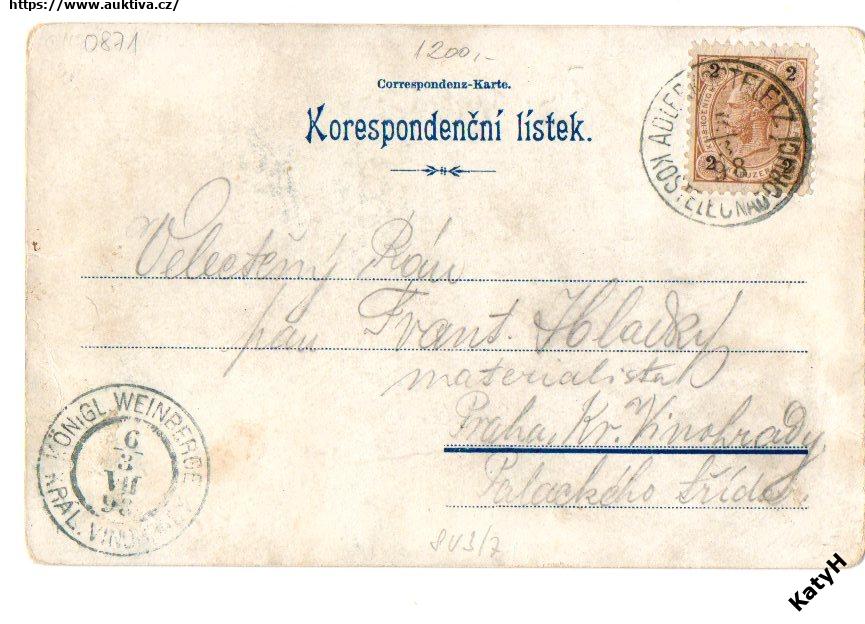 https://www.auktiva.cz/
0871
1200,-
Correspondenz-Karte.
Korespondenční lístek.
2 2
2 2
ADLER KOSTELETZ
KOSTELEC NAD ORLICÍ
Velectěný Pán
pan Frant. Hladký
materialista
Praha, Kr. Vinohrady
Palackého třída.
KÖNIGL. WEINBERGE
6
3
VII
98
KRÁL. VINOHRADY
8V3/7
KatyH